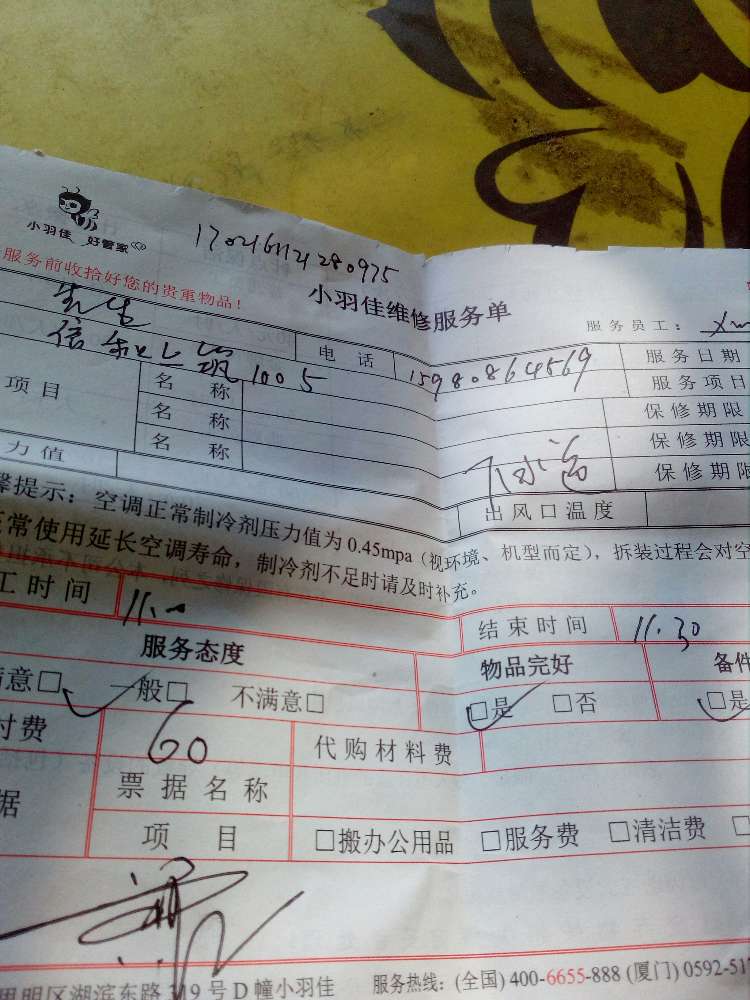 小羽佳 好管家
1702161121280975
服务前收拾好您的贵重物品!
小羽佳维修服务单
服务员工:
先生
电话 15980864569 服务日期
1005 服务项目
项目 名称 保修期限
名称 保修期限
名称 保修期限
力值 出风口温度
馨提示:空调正常制冷剂压力值为0.45mpa(视环境、机型而定),拆装过程会对空
正常使用延长空调寿命,制冷剂不足时请及时补充。
工时间 11.00 结束时间 11.30
服务态度 物品完好 备件
满意□ 一般□ 不满意□ □是 □否 □是
付费 60 代购材料费
据 票据名称
项目 □搬办公用品 □服务费 □清洁费
思明区湖滨东路319号D幢小羽佳 服务热线:(全国)400-6655-888(厦门)0592-517